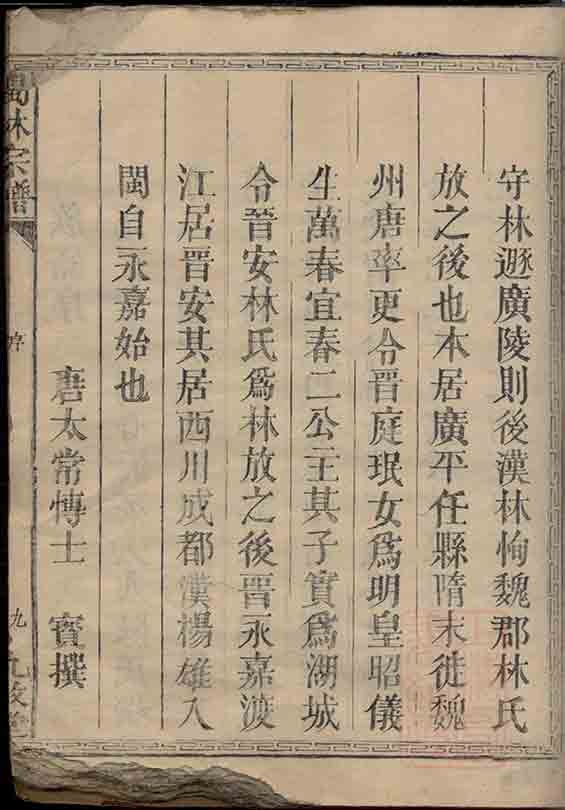 守林遯廣陵則後漢林恂魏郡林氏
放之後也本居廣平任縣隋末徙魏
州唐率更令晉庭珉女爲明皇昭儀
生萬春宜春二公主其子實爲湖城
令晉安林氏爲林放之後晉永嘉渡
江居晉安其居西川成都漢楊雄入
閩自永嘉始也
唐太常博士 寳撰
林宗譜
序
九
九牧堂